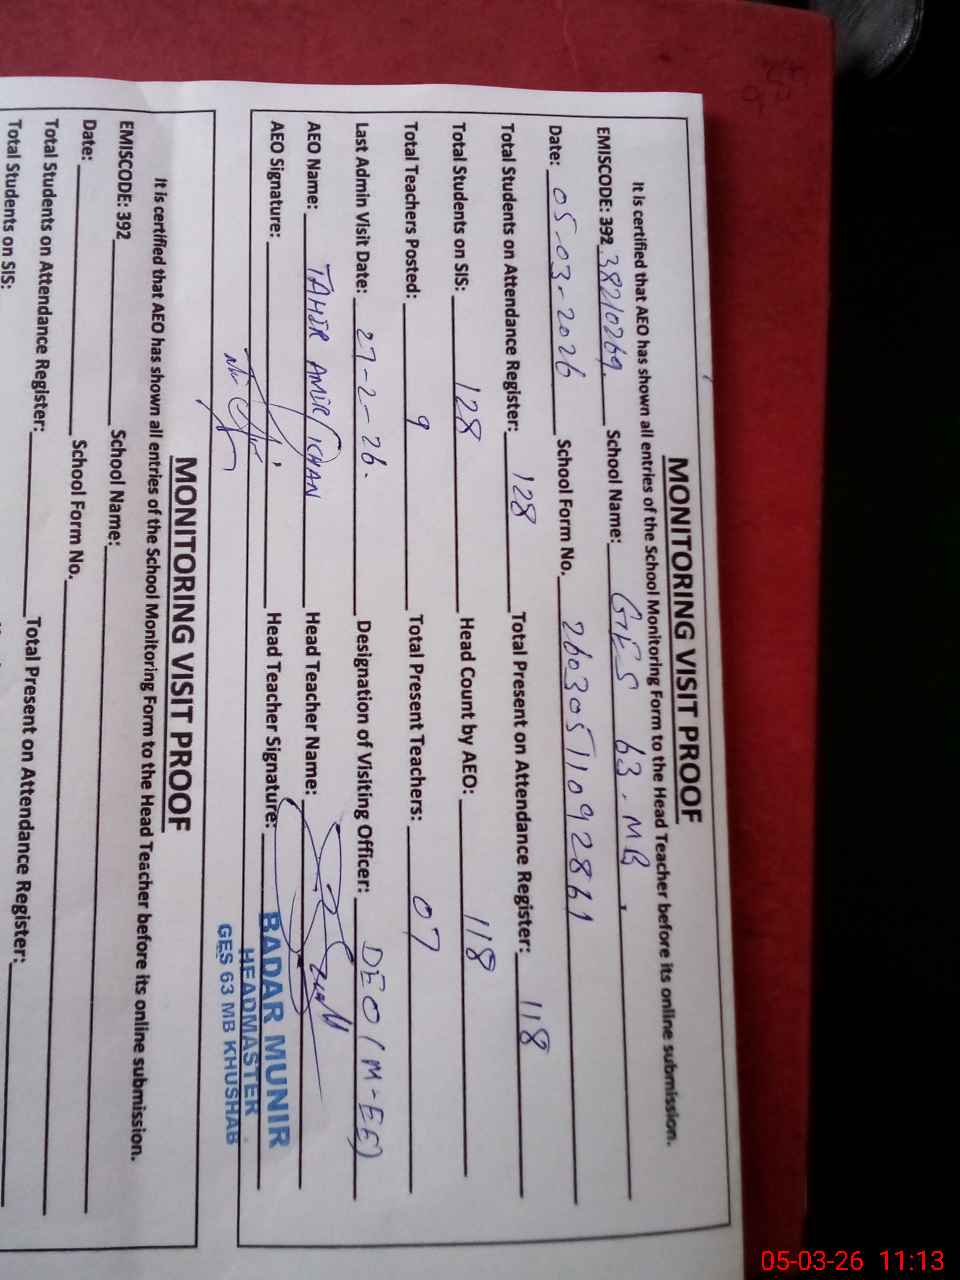 MONITORING VISIT PROOF
It is certified that AEO has shown all entries of the School Monitoring Form to the Head Teacher before its online submission.
EMISCODE: 392 38210269. School Name: GES 63. MB
Date: 05-03-2026 School Form No. 2603051109286
Total Students on Attendance Register: 128 Total Present on Attendance Register: 118
Total Students on SIS: 128 Head Count by AEO: 118
Total Teachers Posted: 9 Total Present Teachers: 07
Last Admin Visit Date: 27-2-26. Designation of Visiting Officer: DEO (M-EE)
AEO Name: TAHIR AMIR KHAN Head Teacher Name:
AEO Signature: Head Teacher Signature:
BADAR MUNIR
HEADMASTER
GES 63 MB KHUSHAB
MONITORING VISIT PROOF
It is certified that AEO has shown all entries of the School Monitoring Form to the Head Teacher before its online submission.
EMISCODE: 392 School Name:
Date: School Form No.
Total Students on Attendance Register: Total Present on Attendance Register:
Total Students on SIS:
05-03-26 11:13